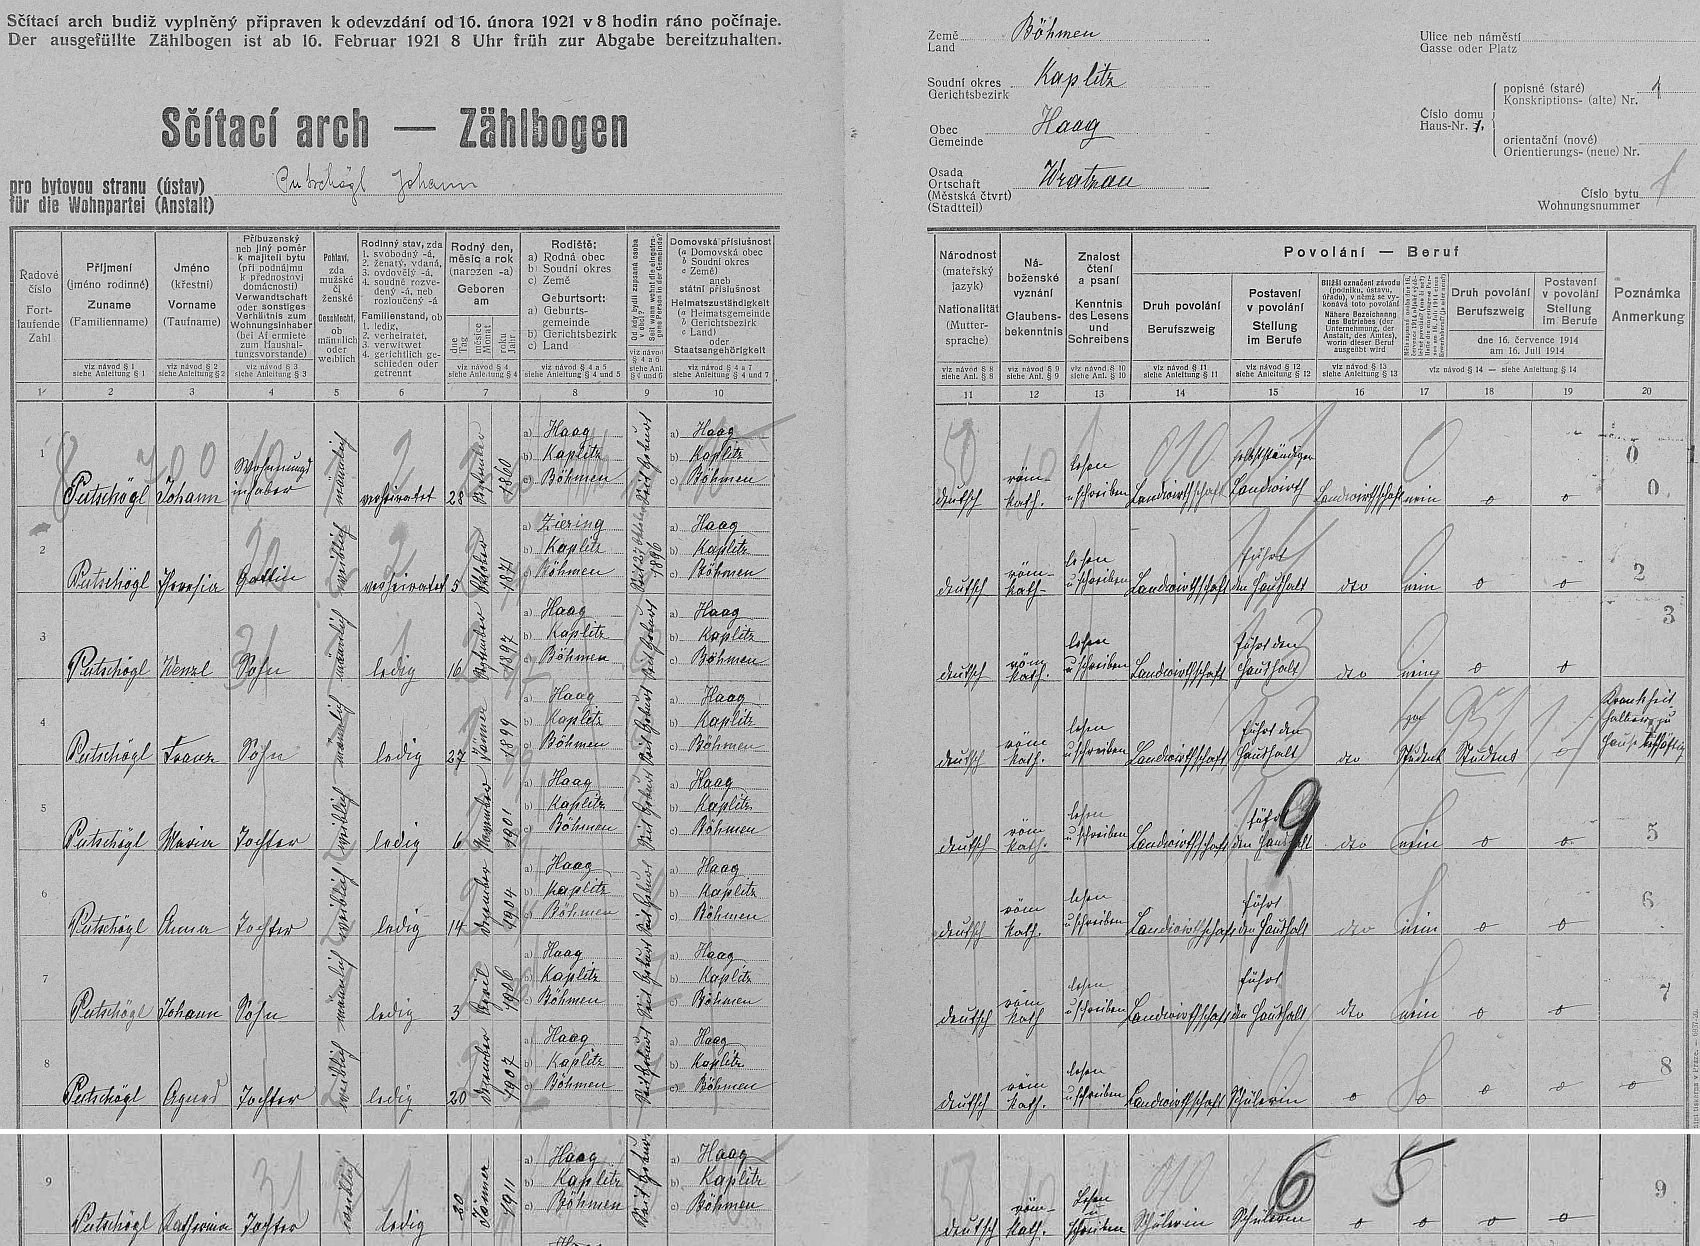 Sčítací arch budiž vyplněný připraven k odevzdání od 16. února 1921 v 8 hodin ráno počínaje.
Der ausgefüllte Zählbogen ist ab 16. Februar 1921 8 Uhr früh zur Abgabe bereitzuhalten.
Sčítací arch — Zählbogen
pro bytovou stranu (ústav)
für die Wohnpartei (Anstalt)
Putschögl Johann
Země
Land
Böhmen
Soudní okres
Gerichtsbezirk
Kaplitz
Obec
Gemeinde
Haag
Osada
Ortschaft
(Městská čtvrť)
(Stadtteil)
Wratzau
Ulice neb náměstí
Gasse oder Platz
Číslo domu
Haus-Nr.
popisné (staré)
Konskriptions- (alte) Nr. 1
orientační (nové)
Orientierungs- (neue) Nr.
Číslo bytu
Wohnungsnummer 1
Řadové číslo
Fortlaufende Zahl
Příjmení
(jméno rodinné)
Zuname
(Familienname)
viz návod § 1
siehe Anleitung § 1
Jméno
(křestní)
Vorname
(Taufname)
viz návod § 2
siehe Anleitung § 2
Příbuzenský
neb jiný poměr
k majiteli bytu
(při podnájmu
k přednostovi
domácnosti)
Verwandtschaft
oder sonstiges
Verhältnis zum
Wohnungsinhaber
(bei Aftermiete
zum Haushal-
tungsvorstande)
viz návod § 3
siehe Anleitung § 3
Pohlaví,
zda
mužské
či
ženské
Geschlecht,
ob
männlich
oder
weiblich
Rodinný stav, zda
1. svobodný -á,
2. ženatý, vdaná,
3. ovdovělý -á,
4. soudně rozve-
dený -á, neb
rozloučený -á
Familienstand, ob
1. ledig,
2. verheiratet,
3. verwitwet
4. gerichtlich ge-
schieden oder
getrennt
Rodný den,
měsíc a rok
(narozen -a)
Geboren
am
dne Tag
měsíce Monat
roku Jahr
viz návod § 4
siehe Anleitung § 4
Rodiště:
a) Rodná obec
b) Soudní okres
c) Země
Geburtsort:
a) Geburts-
gemeinde
b) Gerichtsbezirk
c) Land
viz návod § 4 a 5
siehe Anleitung § 4 und 5
Od kdy bydlí zapsaná osoba v obci?
Seit wann wohnt die eingetragene Person in der Gemeinde?
Domovská příslušnost
(a Domovská obec
b Soudní okres
c Země)
aneb
státní příslušnost
Heimatszuständigkeit
(a Heimatsgemeinde
b Gerichtsbezirk
c Land)
oder
Staatsangehörigkeit
viz návod § 4 a 7
siehe Anleitung § 4 und 7
Národnost
(mateřský
jazyk)
Nationalität
(Mutter-
sprache)
viz návod § 8
siehe Anl. § 8
Ná-
boženské
vyznání
Glaubens-
bekenntnis
viz návod § 9
siehe Anl. § 9
Znalost
čtení
a psaní
Kenntnis
des Lesens
und
Schreibens
viz návod § 10
siehe Anl. § 10
Povolání — Beruf
Druh povolání
Berufszweig
viz návod § 11
siehe Anleitung § 11
Postavení
v povolání
Stellung
im Berufe
viz návod § 12
siehe Anleitung § 12
Bližší označení závodu
(podniku, ústavu,
úřadu), v němž se vy-
konává toto povolání
Nähere Bezeichnung
des Betriebes (der
Unternehmung, der
Anstalt, des Amtes),
worin dieser Beruf
ausgeübt wird
viz návod § 13
siehe Anleitung § 13
Druh povolání
Berufszweig
Postavení
v povolání
Stellung
im Berufe
dne 16. července 1914
am 16. Juli 1914
viz návod § 14 — siehe Anleitung § 14
Poznámka
Anmerkung
1 2 3 4 5 6 7 8 9 10 11 12 13 14 15 16 17 18 19 20
1 Putschögl Johann Wohnungsinhaber männlich verheiratet 28 1860 a) Haag b) Kaplitz c) Böhmen Seit Geburt a) Haag b) Kaplitz c) Böhmen deutsch röm-kath. lesen u schreiben Landwirthschaft selbstständiger Landwirth Landwirthschaft nein o o 0
2 Putschögl Theresia Gattin weiblich verheiratet 5 Oktober 1871 a) Ziering b) Kaplitz c) Böhmen 1896 a) Haag b) Kaplitz c) Böhmen deutsch röm-kath. lesen u schreiben Landwirthschaft führt den Haushalt dto nein o o 2
3 Putschögl Wenzl Sohn männlich ledig 16 September 1897 a) Haag b) Kaplitz c) Böhmen Seit Geburt a) Haag b) Kaplitz c) Böhmen deutsch röm kath. lesen u schreiben Landwirthschaft führt den Haushalt dto nein o o 3
4 Putschögl Franz Sohn männlich ledig 27 Jänner 1899 a) Haag b) Kaplitz c) Böhmen Seit Geburt a) Haag b) Kaplitz c) Böhmen deutsch röm kath. lesen u schreiben Landwirthschaft führt den Haushalt dto Student Student o Krankheit halber zu Hause beschäftig
5 Putschögl Maria Tochter weiblich ledig 6 1901 a) Haag b) Kaplitz c) Böhmen Seit Geburt a) Haag b) Kaplitz c) Böhmen deutsch röm kath. lesen u schreiben Landwirthschaft führt den Haushalt dto nein o o 5
6 Putschögl Anna Tochter weiblich ledig 14 Dezember 1904 a) Haag b) Kaplitz c) Böhmen Seit Geburt a) Haag b) Kaplitz c) Böhmen deutsch röm kath. lesen u schreiben Landwirthschaft führt den Haushalt dto nein o o 6
7 Putschögl Johann Sohn männlich ledig 3 April 1906 a) Haag b) Kaplitz c) Böhmen Seit Geburt a) Haag b) Kaplitz c) Böhmen deutsch röm kath lesen u schreiben Landwirthschaft führt den Haushalt dto nein o o 7
8 Putschögl Agnes Tochter weiblich ledig 20 Dezember 1907 a) Haag b) Kaplitz c) Böhmen Seit Geburt a) Haag b) Kaplitz c) Böhmen deutsch röm kath. lesen u schreiben Landwirthschaft Schülerin o o o o o 8
9 Putschögl Katharina Tochter weiblich ledig 30 Jänner 1911 a) Haag b) Kaplitz c) Böhmen Seit Geburt a) Haag b) Kaplitz c) Böhmen deutsch röm-kath. Lesen u schreiben Schülerin Schülerin o o o o 9